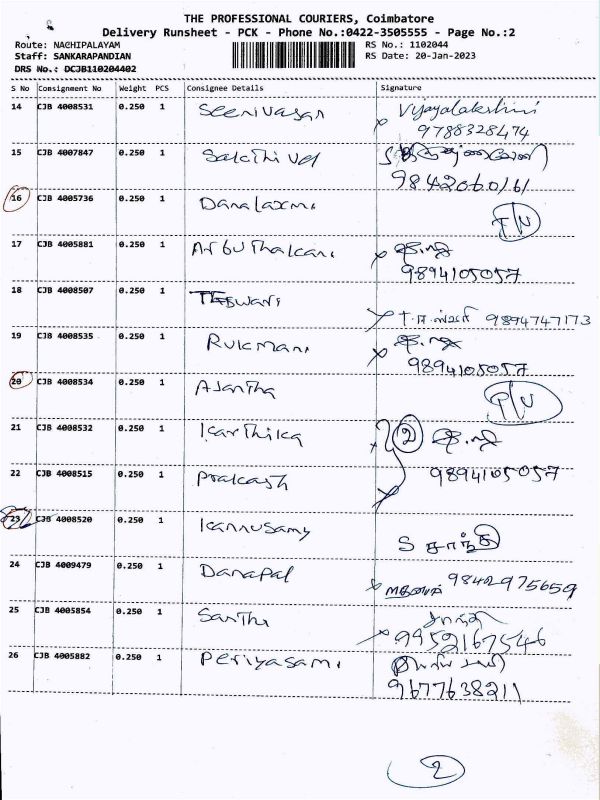 THE PROFESSIONAL COURIERS, Coimbatore
Delivery Runsheet - PCK - Phone No.:0422-3505555 - Page No.:2
Route: NACHIPALAYAM RS No.: 1102044
Staff: SANKARAPANDIAN RS Date: 20-Jan-2023
DRS No.: DCJB110204402
S No Consignment No Weight PCS Consignee Details Signature
14 CJB 4008531 0.250 1 Seenivasan Vijayalakshmi
9788328474
15 CJB 4007847 0.250 1 Sakthivel
9842060161
16 CJB 4005736 0.250 1 Danalaxmi
17 CJB 4005881 0.250 1 Arbuthakani
9894105057
18 CJB 4008507 0.250 1 9894747173
19 CJB 4008535 0.250 1 Rukmani
9894105057
20 CJB 4008534 0.250 1 Ajantha
21 CJB 4008532 0.250 1 Karthika 2
22 CJB 4008515 0.250 1 Prakash 9894105057
23 CJB 4008520 0.250 1 Kannusamy
S சாந்தி
24 CJB 4009479 0.250 1 Danapal 9842975659
25 CJB 4005854 0.250 1 Santhi
9952167546
26 CJB 4005882 0.250 1 Periyasami
9677638211
2